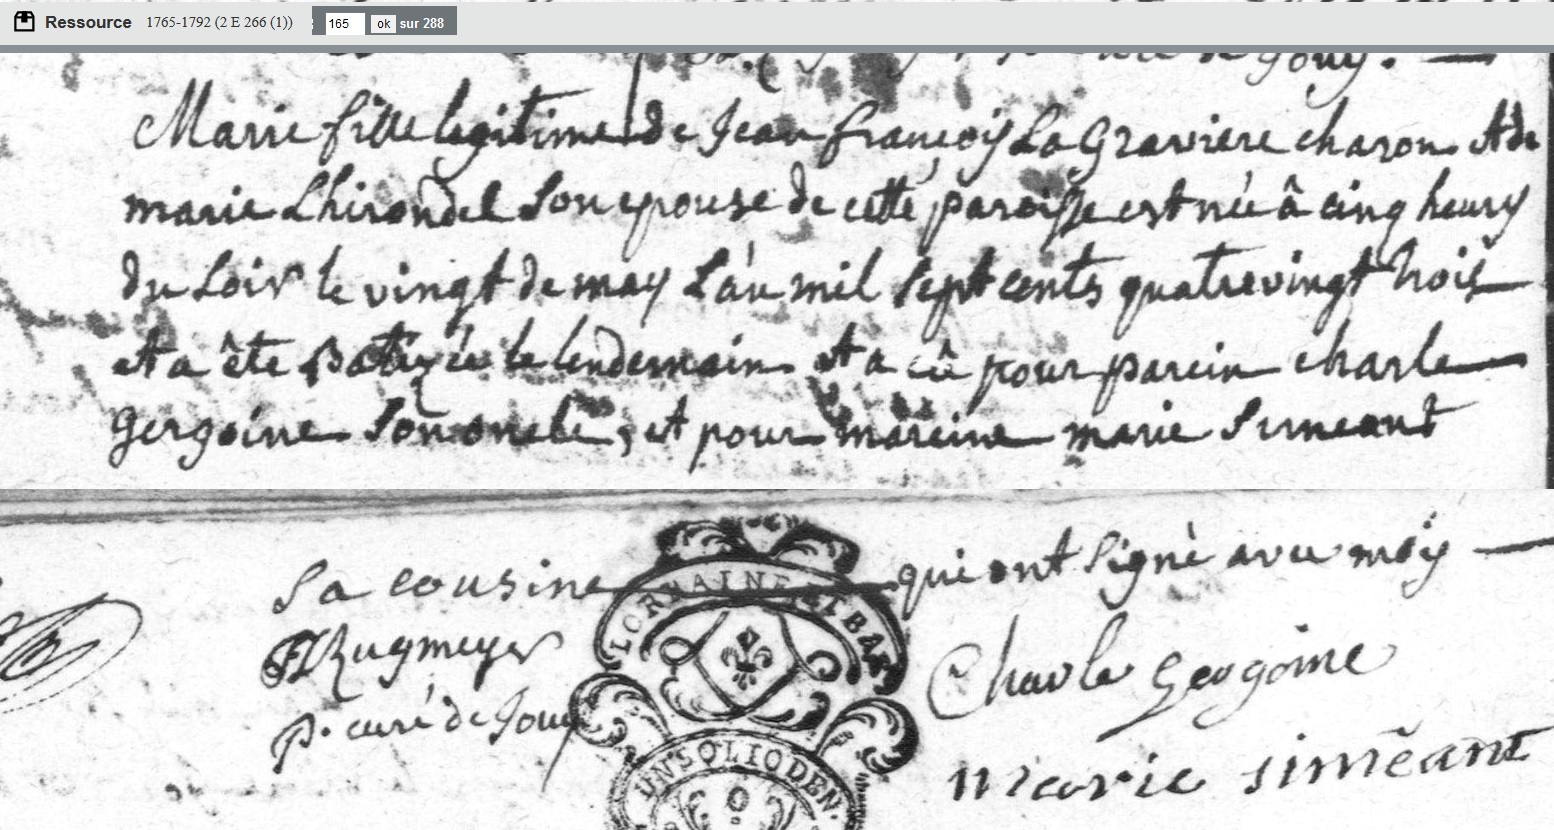 Ressource 1765-1792 (2 E 266 (1)) : 165 ok sur 288
de Jouy.
Marie fille legitime de Jean françois La Graviere charon et de
marie Lhirondel Son epouse de cette paroisse est née â cinq heurs
du Soir le vingt de may L'an mil Sept cents quatrevingt trois
et a ête Batizée le lendemain et a eû pour parein charle
gergoine Son oncle, et pour mareine marie Simeant
Sa cousine qui ont Signé avec moy
LORRAINE ET BAR
Charle gergoine
p. curé de Jouy
marie simeant
UN SOL IO DEN.